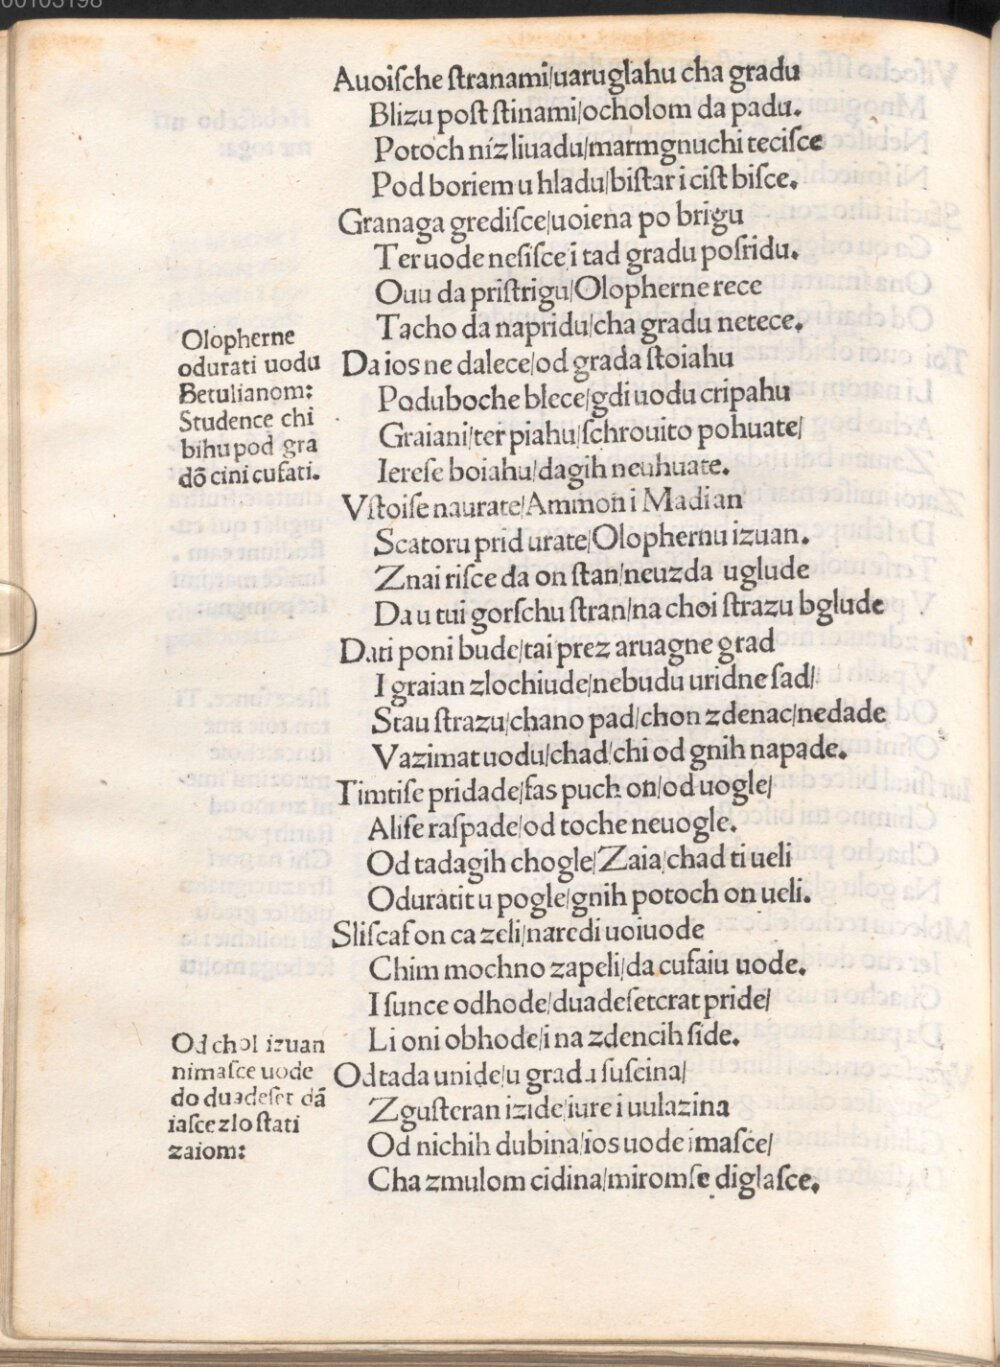 00103198
Auoiſche ſtranami/uaruglahu cha gradu
Blizu poſt ſtinami/ocholom da padu.
Potoch niz liuadu/marmgnuchi teciſce
Pod boriem u hladu/biſtar i ciſt biſce.
Granaga grediſce/uoiena po brigu
Ter uode neſiſce i tad gradu poſridu.
Ouu da priſtrigu/Olopherne rece
Tacho da napridu/cha gradu netece.
Da ios ne dalece/od grada ſtoiahu
Poduboche blece/gdi uodu cripahu
Graiani/ter piahu/ſchrouito pohuate/
Iereſe boiahu/dagih neuhuate.
Vſtoiſe naurate/Ammon i Madian
Scatoru prid urate/Olophernu izuan.
Znai riſce da on ſtan/neuzda uglude
Da u tui gorſchu ſtran/na choi ſtrazu bglude
Dati poni bude/tai prez aruagne grad
I graian zlochiude/nebudu uridne ſad/
Stau ſtrazu/chano pad/chon zdenac/nedade
Vazimat uodu/chad/chi od gnih napade.
Timtiſe pridade/ſas puch on/od uogle/
Aliſe raſpade/od toche neuogle.
Od tadagih chogle/Zaia/chad ti ueli
Oduratit u pogle/gnih potoch on ueli.
Sliſcaſ on ca zeli/naredi uoiuode
Chim mochno zapeli/da cuſaiu uode.
I ſunce odhode/duadeſetcrat pride/
Li oni obhode/i na zdencih ſide.
Od tada unide/u gradu ſuſcina/
Zguſteran izide/iure i uulazina
Od nichih dubina/ios uode imaſce/
Cha zmulom cidina/miromſe diglaſce.
Olopherne
odurati uodu
Betulianom:
Studence chi
bihu pod gra
dō cini cuſati.
Od chol izuan
nimaſce uode
do duadeſet dā
iaſce zlo ſtati
zaiom: